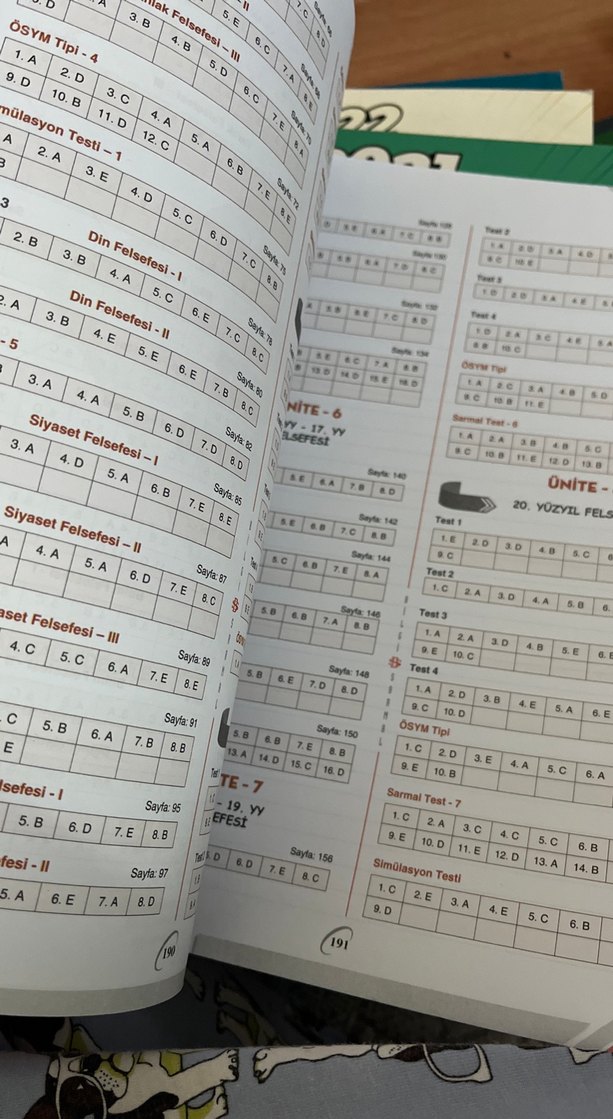 7. C 8. D
5. E 6. C 7. A 8. E
3. B 4. B 5. D 6. C 7. E 8. A
ÖSYM Tipi - 4
1. A 2. D 3. C 4. A 5. A 6. B 7. E 8. E
9. D 10. B 11. D 12. C
Sayfa: 72
mülasyon Testi – 1
A 2. A 3. E 4. D 5. C 6. D 7. C 8. B
Sayfa: 75
3
Din Felsefesi - I
2. B 3. B 4. A 5. C 6. E 7. C 8. C
Sayfa: 78
Din Felsefesi - II
2. A 3. B 4. E 5. E 6. E 7. B 8. C
Sayfa: 80
- 5
3. A 4. A 5. B 6. D 7. D 8. D
Sayfa: 82
Siyaset Felsefesi – I
3. A 4. D 5. A 6. B 7. E 8. E
Sayfa: 85
Siyaset Felsefesi – II
A 4. A 5. A 6. D 7. E 8. C
Sayfa: 87
aset Felsefesi – III
4. C 5. C 6. A 7. E 8. E
Sayfa: 89
C 5. B 6. A 7. B 8. B
E
Sayfa: 91
lsefesi - I
5. B 6. D 7. E 8. B
Sayfa: 95
fesi - II
5. A 6. E 7. A 8. D
Sayfa: 97
190
NİTE - 6
YY - 17. YY
ELSEFESİ
Sayfa: 140
5. E 6. A 7. B 8. D
Sayfa: 142
5. E 6. B 7. C 8. B
Sayfa: 144
5. C 6. B 7. E 8. A
Sayfa: 146
5. B 6. B 7. A 8. B
Sayfa: 148
5. B 6. E 7. D 8. D
Sayfa: 150
5. B 6. B 7. E 8. B
13. A 14. D 15. C 16. D
TE - 7
- 19. YY
EFESİ
Sayfa: 156
D 6. D 7. E 8. C
Test 2
Test 3
Test 4
1. D 2. A 3. C 4. E 5. A
9. B 10. C
ÖSYM Tipi
1. A 2. C 3. A 4. B 5. D
9. C 10. B 11. E
Sarmal Test - 6
1. A 2. A 3. B 4. B 5. C
9. C 10. B 11. E 12. D 13. B
ÜNİTE -
20. YÜZYIL FELS
Test 1
1. E 2. D 3. D 4. B 5. C
9. C
Test 2
1. C 2. A 3. D 4. A 5. B 6.
Test 3
1. A 2. A 3. D 4. B 5. E 6.
9. E 10. C
Test 4
1. A 2. D 3. B 4. E 5. A 6. E
9. C 10. D
ÖSYM Tipi
1. C 2. D 3. E 4. A 5. C 6. A
9. E 10. B
Sarmal Test - 7
1. C 2. A 3. C 4. C 5. C 6. B
9. E 10. D 11. E 12. D 13. A 14. B
Simülasyon Testi
1. C 2. E 3. A 4. E 5. C 6. B
9. D
191